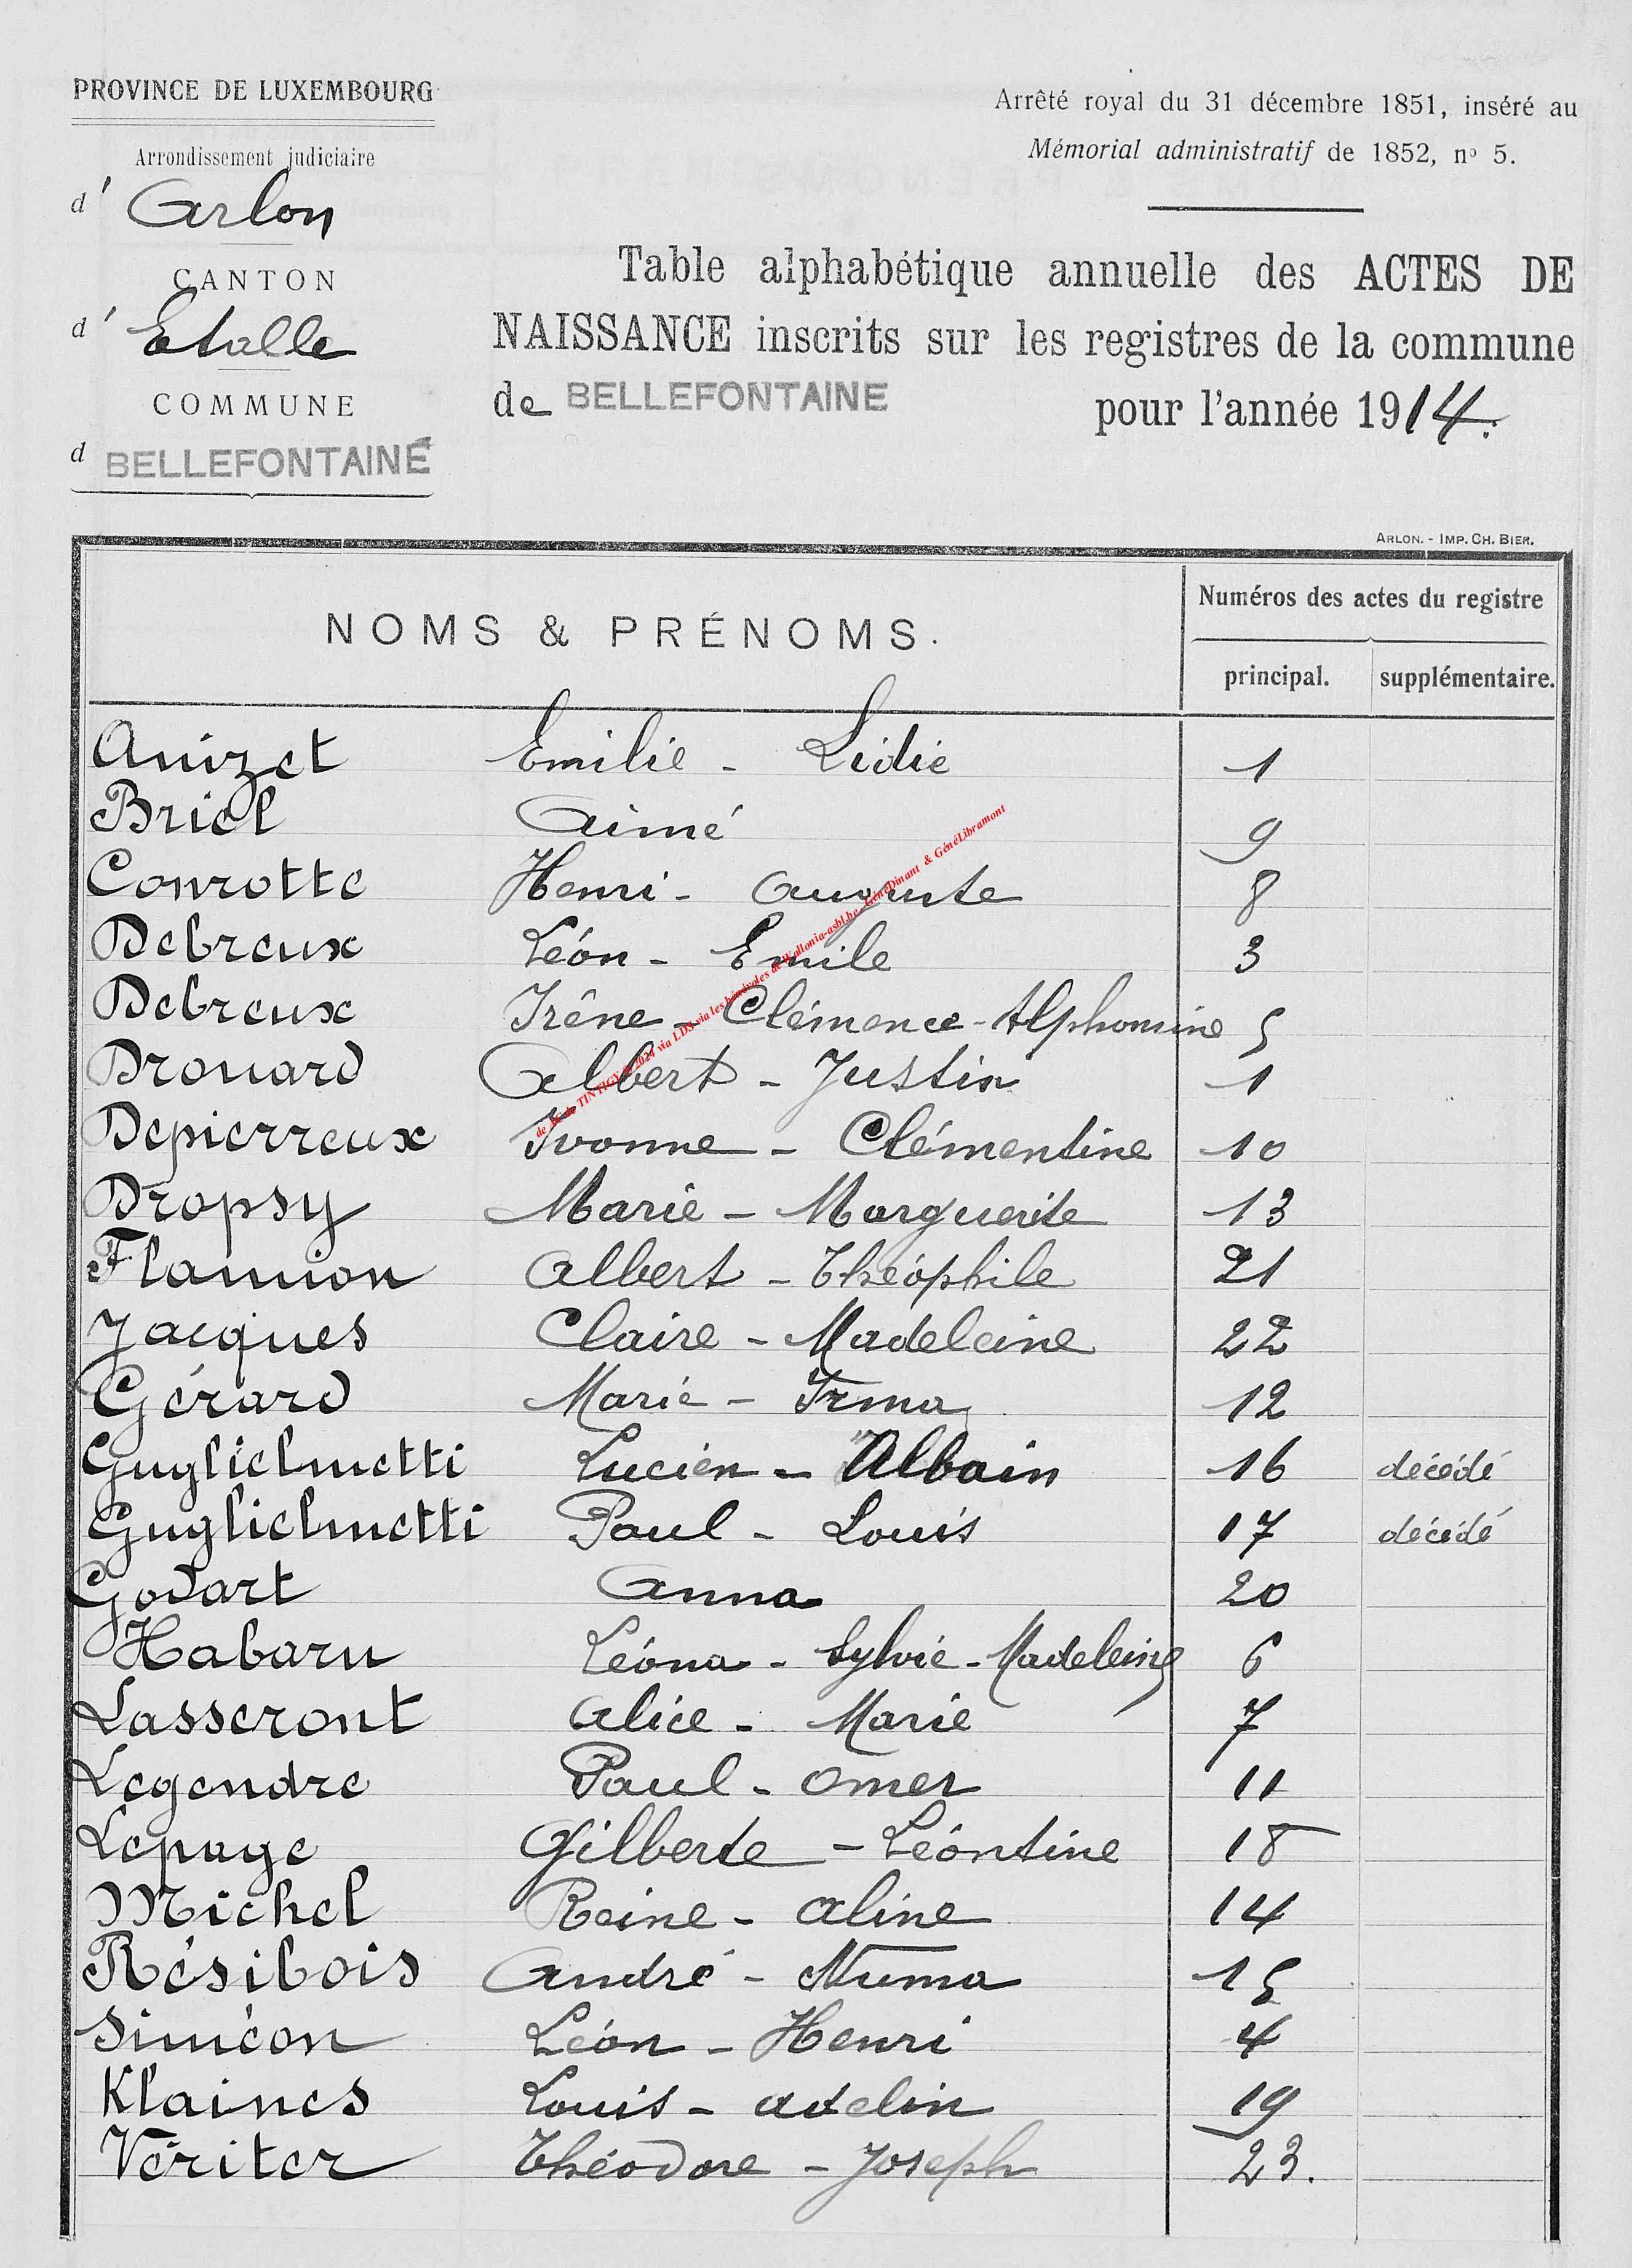 PROVINCE DE LUXEMBOURG
Arrondissement judiciaire
d' Arlon
CANTON
d' Etalle
COMMUNE
d BELLEFONTAINE
Arrêté royal du 31 décembre 1851, inséré au
Mémorial administratif de 1852, nº 5.
Table alphabétique annuelle des ACTES DE
NAISSANCE inscrits sur les registres de la commune
de BELLEFONTAINE pour l'année 1914.
ARLON. - IMP. CH. BIER.
NOMS & PRÉNOMS.
Numéros des actes du registre
principal. supplémentaire.
Anizet Emilie - Lidie 1
Briel Aimé 9
Conrotte Henri - Auguste 8
Debreux Léon - Emile 3
Debreux Irêne - Clémence - Alphonsine 5
Drouard Albert - Justin 1
Depierreux Yvonne - Clémentine 10
Dropsy Marie - Marguerite 13
Flamion Albert - Théophile 21
Jacques Claire - Madeleine 22
Gérard Marie - Irma 12
Guglielmetti Lucien - Albain 16 décédé
Guglielmetti Paul - Louis 17 décédé
Godart Anna 20
Habaru Léona - Sylvie - Madeleine 6
Lasseront Alice - Marie 7
Legendre Paul - Omer 11
Lepage Gilberte - Léontine 18
Michel Reine - Aline 14
Résibois André - Numa 15
Siméon Léon - Henri 4
Klaines Louis - Adelin 19
Vériter Théodore - Joseph 23.
TINTIGY 2024 via LDS via les bénévoles de Wallonia-asbl.be - GénéDinant & GénéLibramont